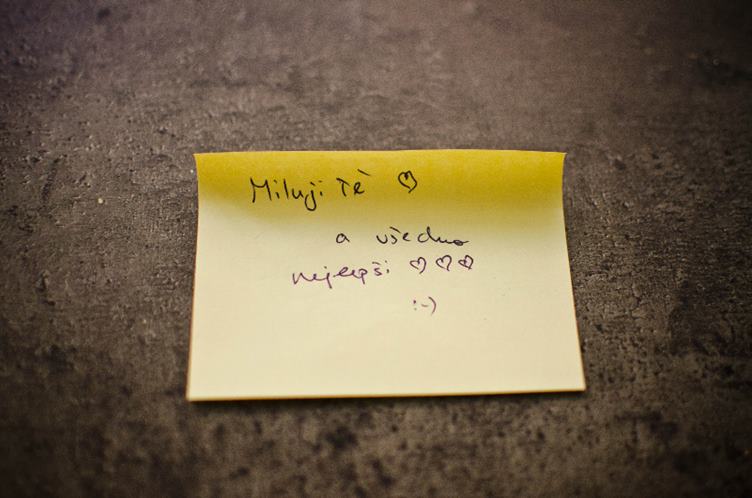 Miluji Tě ♡
a všechno
nejlepší ♡♡♡
:-)